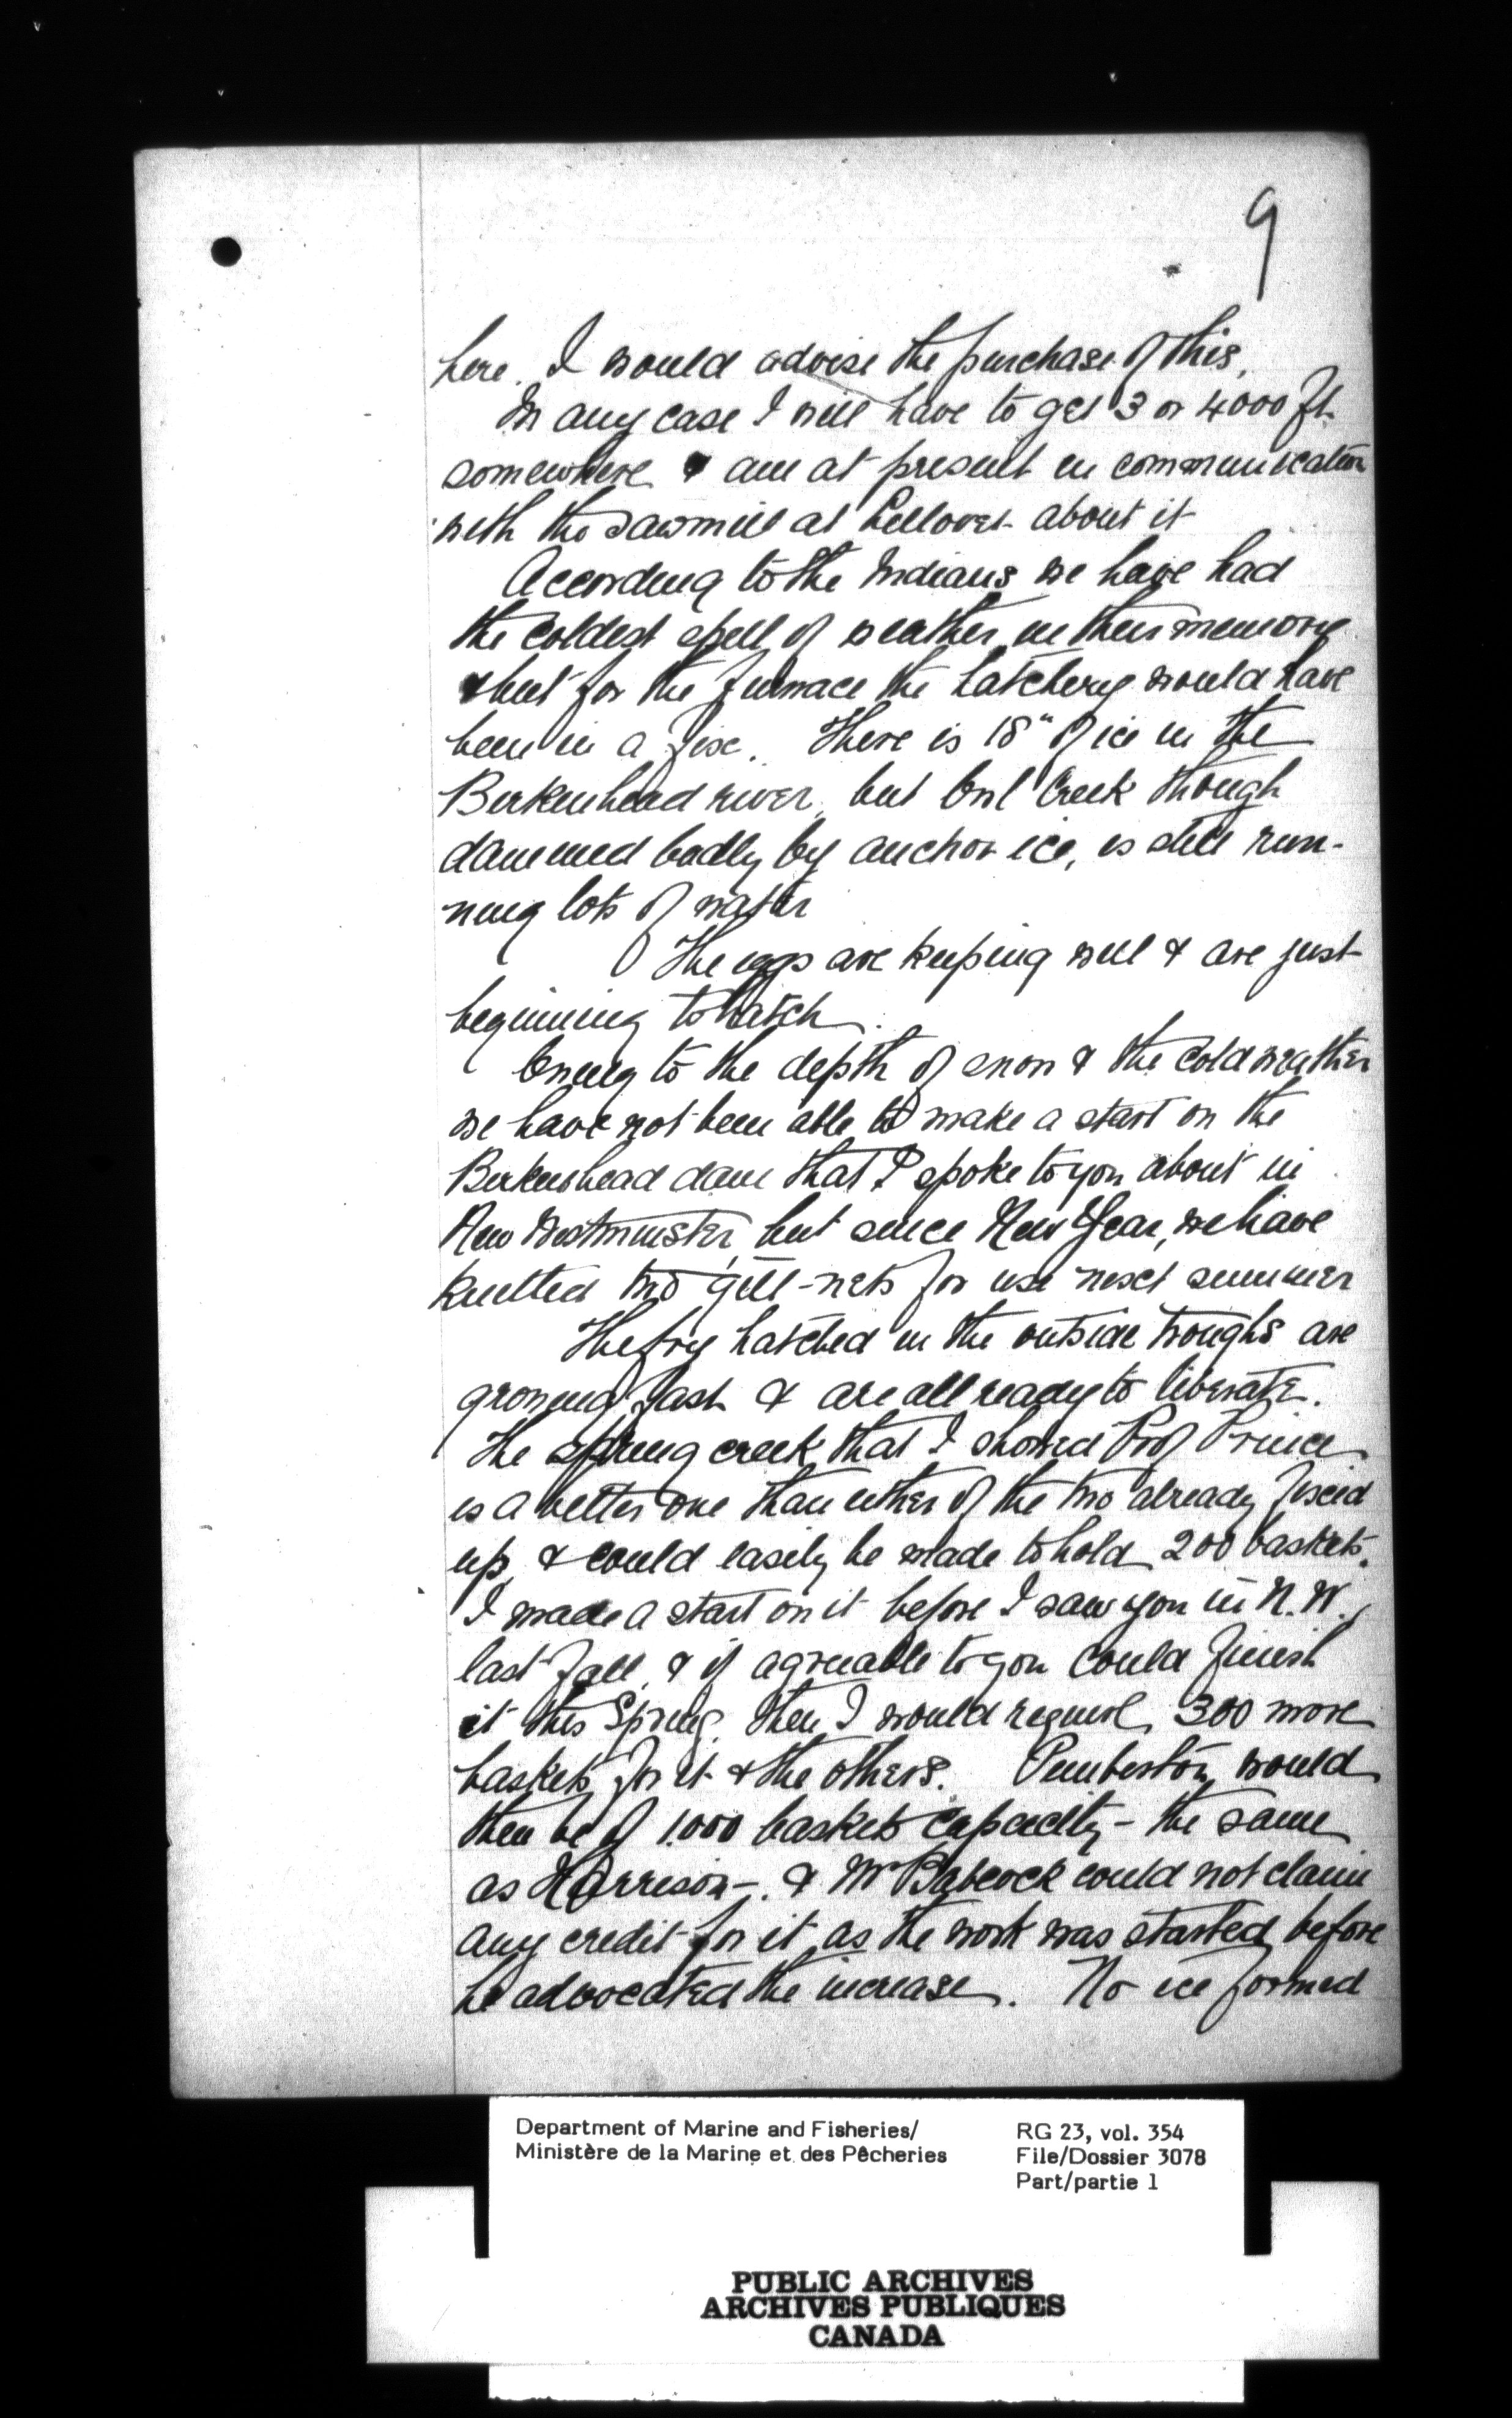 9
here. I would advise the purchase of this.
In any case I will have to get 3 or 4000 ft.
somewhere & am at present in communication
with the sawmill at Lillooet about it
According to the Indians we have had
the coldest spell of weather in their memory
& but for the furnace the hatchery would have
been in a fix. There is 18" of ice in the
Birkenhead river, but Owl Creek though
dammed badly by anchor ice, is still run-
ning lots of water
The eggs are keeping well & are just
beginning to hatch.
Owing to the depth of snow & the cold weather
we have not been able to make a start on the
Birkenhead dam that I spoke to you about in
New Westminster, but since New Year, we have
knitted two gill-nets for use next summer
The fry hatched in the outside troughs are
growing fast & are all ready to liberate.
The spring creek that I showed Prof Prince
is a better one than either of the two already fixed
up, & could easily be made to hold 200 baskets.
I made a start on it before I saw you in N.W.,
last fall, & if agreeable to you could finish
it this Spring. Then I would require 300 more
baskets for it & the others. Pemberton would
then be of 1.000 baskets capacity - the same
as Harrison -. & Mr Babcock could not claim
any credit for it as the work was started before
he advocated the increase. No ice formed
Department of Marine and Fisheries/
Ministère de la Marine et des Pêcheries
RG 23, vol. 354
File/Dossier 3078
Part/partie 1
PUBLIC ARCHIVES
ARCHIVES PUBLIQUES
CANADA